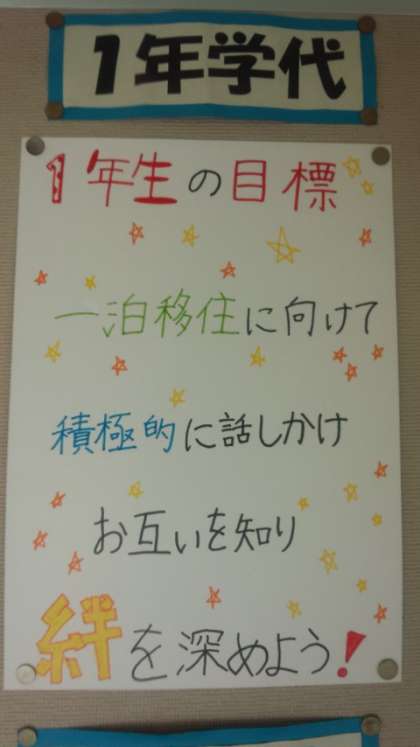 1年学代
1年生の目標
一泊移住に向けて
積極的に話しかけ
お互いを知り
絆を深めよう!